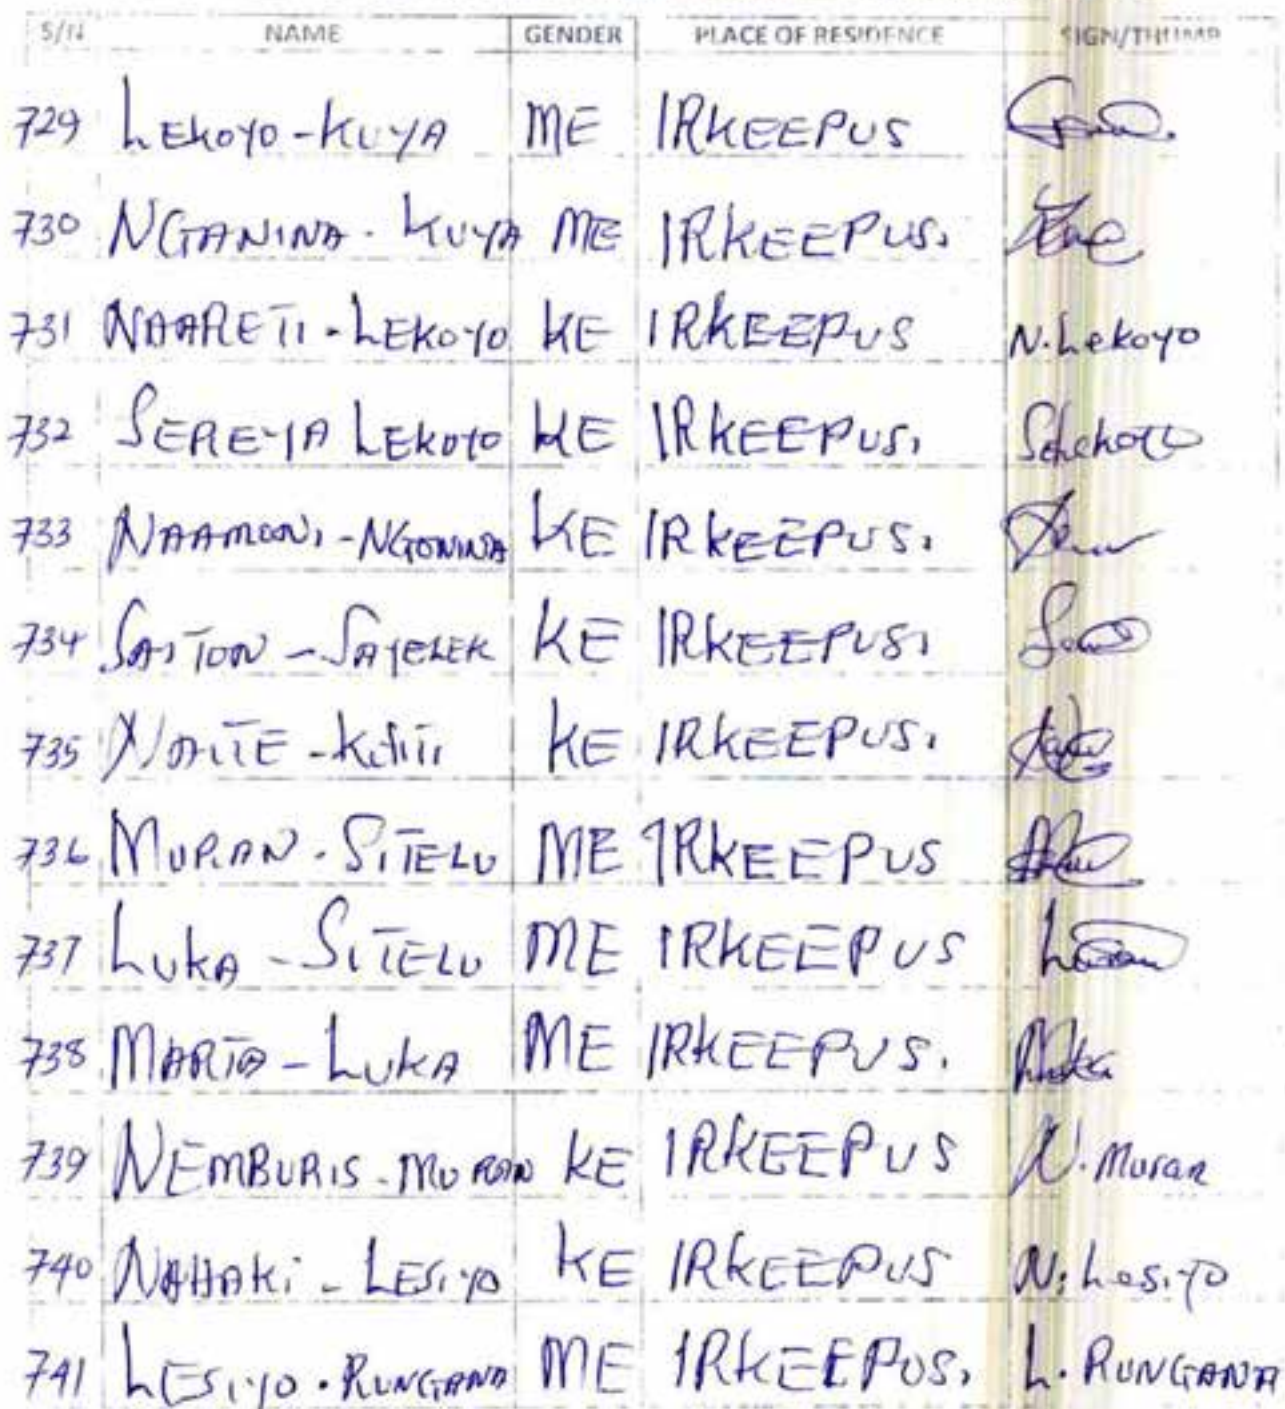 S/N NAME GENDER PLACE OF RESIDENCE SIGN/THUMB
729 LEKOYO-KUYA ME IRKEEPUS
730 NGANINA. KUYA ME IRKEEPUS.
731 NAARETI-LEKOYO KE IRKEEPUS N.Lekoyo
732 SEREYIA LEKOYO KE IRKEEPUS.
733 NAAMONI-NGONINA KE IRKEEPUS.
734 SAITON-SAYELEK KE IRKEEPUS.
735 NAITE- KE IRKEEPUS.
736 MURAN-SITELU ME IRKEEPUS
737 LUKA-SITELU ME IRKEEPUS
738 MARTA-LUKA ME IRKEEPUS.
739 NEMBURIS-MURAN KE IRKEEPUS N.Muran
740 NAHAKi-LESiYO KE IRKEEPUS N.Lesiyo
741 LESiYO.RUNGANA ME IRKEEPUS. L.RUNGANA